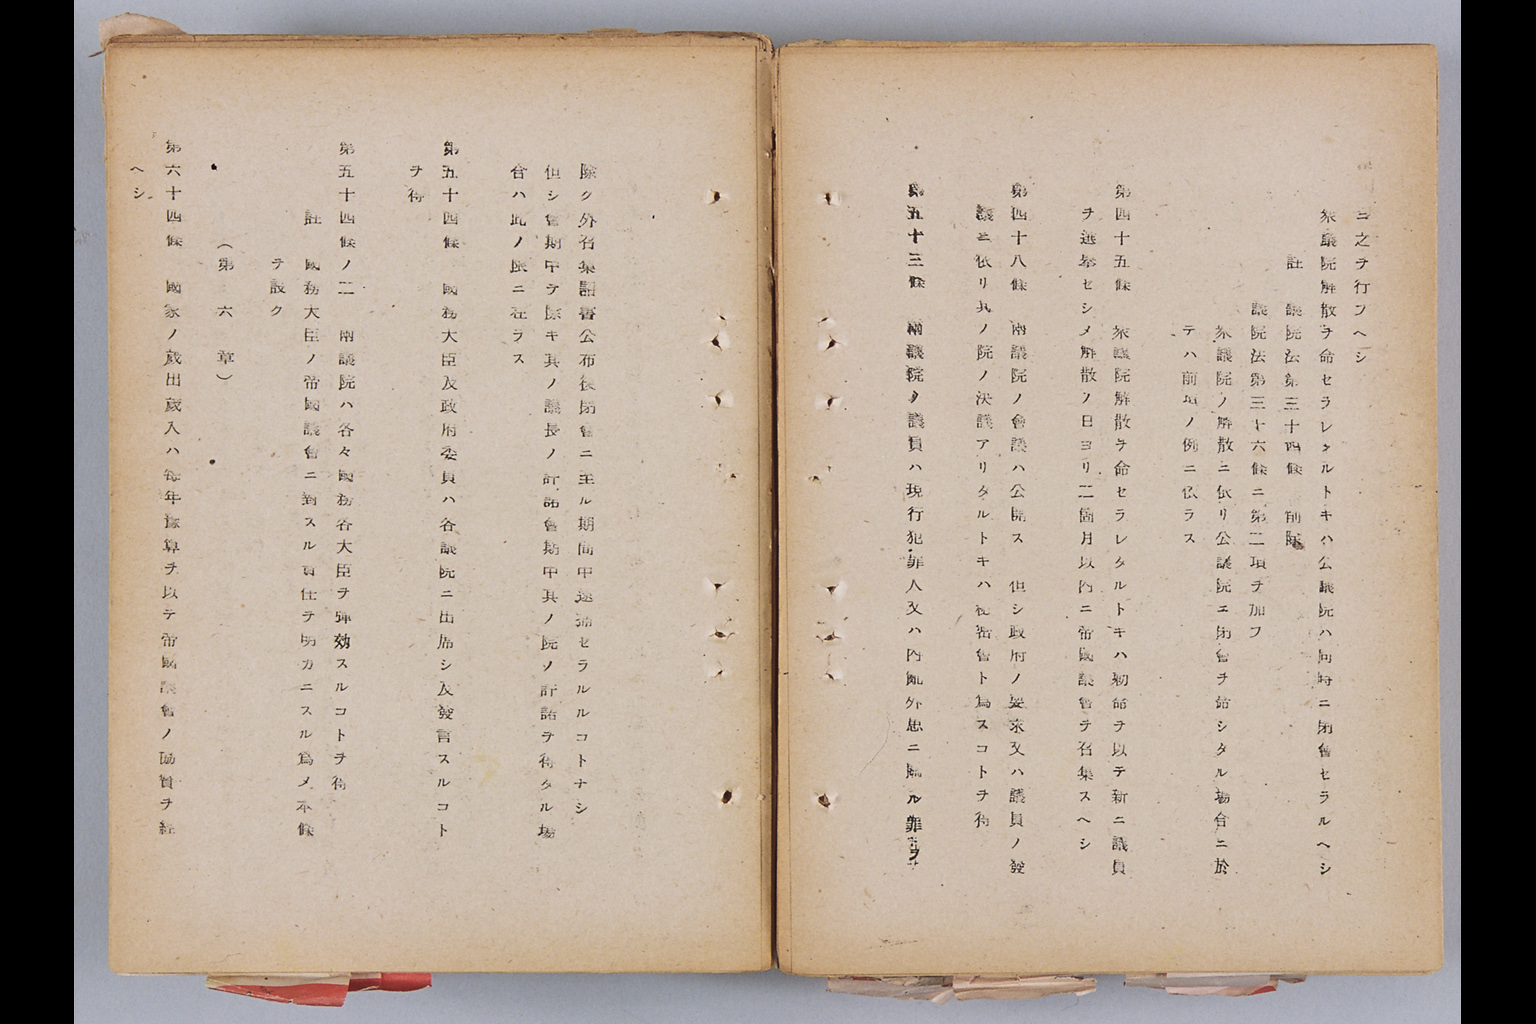 ニ之ヲ行フヘシ
衆議院解散ヲ命セラレタルトキハ公議院ハ同時ニ閉會セラルヘシ
註
議院法第三十四條 削除
議院法第三十六條ニ第二項ヲ加フ
衆議院ノ解散ニ依リ公議院エ閉會ヲ命シタル場合ニ於
テハ前項ノ例ニ依ラス
第四十五條 衆議院解散ヲ命セラレタルトキハ勅命ヲ以テ新ニ議員
ヲ選挙セシメ解散ノ日ヨリ二箇月以内ニ帝國議會ヲ召集スヘシ
第四十八條 兩議院ノ會議ハ公開ス 但シ政府ノ要求又ハ議員ノ發
議ニ依リ其ノ院ノ決議アリタルトキハ秘密會ト爲スコトヲ得
第五十三條 兩議院ノ議員ハ現行犯罪人又ハ内亂外患ニ關ル罪ヲ
除ク外召集詔書公布後閉會ニ至ル期間中逮捕セラルルコトナシ
但シ會期中ヲ除キ其ノ議長ノ許諾會期中其ノ院ノ許諾ヲ得タル場
合ハ此ノ限ニ在ラス
第五十四條 國務大臣及政府委員ハ各議院ニ出席シ及發言スルコト
ヲ得
第五十四條ノ二 兩議院ハ各々國務各大臣ヲ弾劾スルコトヲ得
註 國務大臣ノ帝國議會ニ對スル責任ヲ明カニスル爲メ本條
ヲ設ク
(第六章)
第六十四條 國家ノ歳出歳入ハ毎年豫算ヲ以テ帝國議會ノ協賛ヲ経
ヘシ